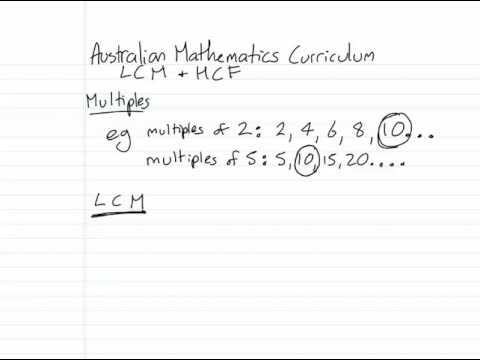 Australian Mathematics Curriculum
LCM + HCF
Multiples
eg multiples of 2: 2, 4, 6, 8, 10...
multiples of 5: 5, 10, 15, 20....
LCM